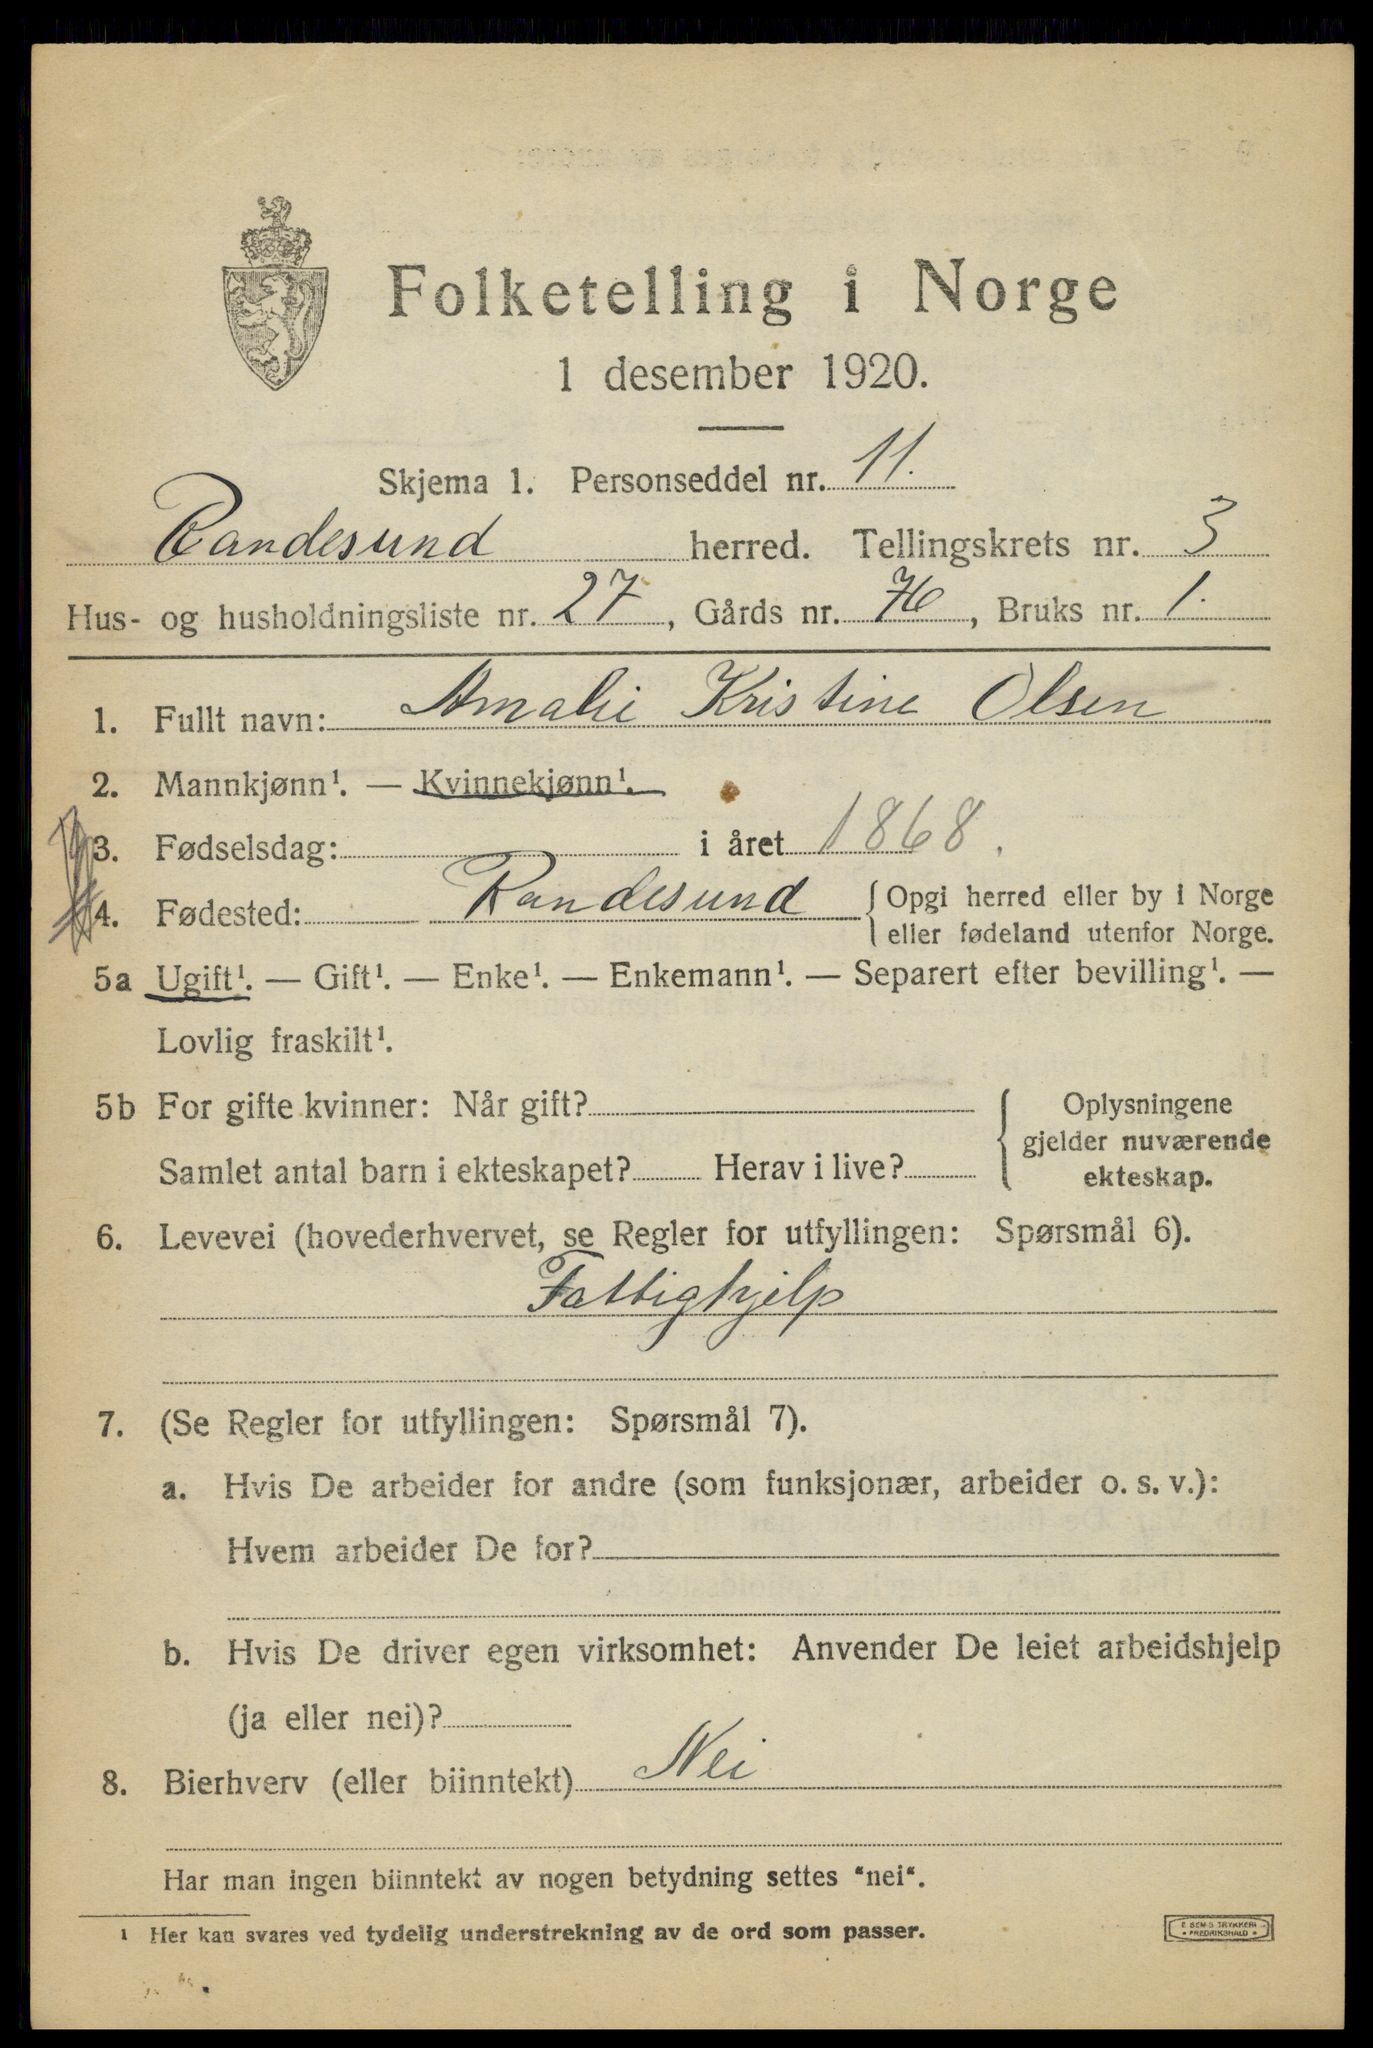 Folketelling i Norge
1 desember 1920.
Skjema 1. Personseddel nr. 11.
Randesund herred. Tellingskrets nr. 3
Hus- og husholdningsliste nr. 27, Gårds nr. 76, Bruks nr. 1.
1. Fullt navn: Amalie Kristine Olsen
2. Mannkjønn¹. — Kvinnekjønn¹.
3. Fødselsdag: i året 1868.
4. Fødested: Randesund { Opgi herred eller by i Norge
eller fødeland utenfor Norge.
5a Ugift¹. — Gift¹. — Enke¹. — Enkemann¹. — Separert efter bevilling¹. —
Lovlig fraskilt¹.
5b For gifte kvinner: Når gift? { Oplysningene
gjelder nuværende
Samlet antal barn i ekteskapet? Herav i live? ekteskap.
6. Levevei (hovederhvervet, se Regler for utfyllingen: Spørsmål 6).
Fattighjelp
7. (Se Regler for utfyllingen: Spørsmål 7).
a. Hvis De arbeider for andre (som funksjonær, arbeider o. s. v.):
Hvem arbeider De for?
b. Hvis De driver egen virksomhet: Anvender De leiet arbeidshjelp
(ja eller nei)?
8. Bierhverv (eller biinntekt) Nei
Har man ingen biinntekt av nogen betydning settes "nei".
1 Her kan svares ved tydelig understrekning av de ord som passer.
E SEM'S TRYKKERI
FREDRIKSHALD